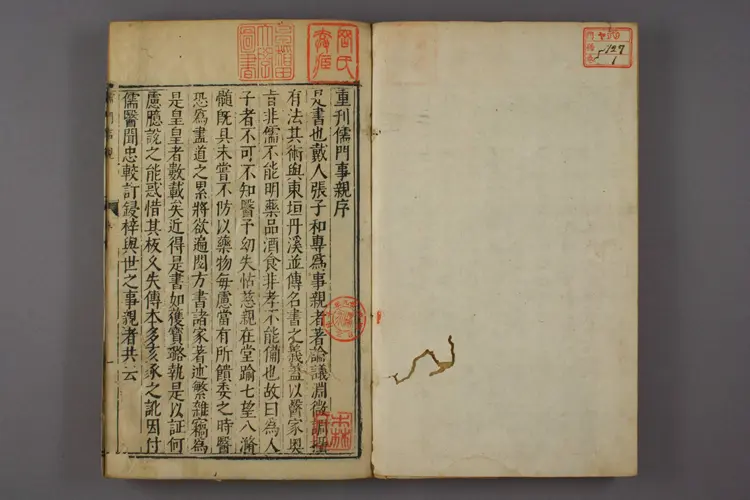 重刊儒門事親序
是書也戴人張子和專為事親者著論議淵微調攝
有法其術與東垣丹溪並傳名書之義蓋以醫家奧
旨非儒不能明藥品酒食非孝不能備也故曰為人
子者不可不知醫予幼失怙慈親在堂踰七望八滫
髓既具未嘗不防以藥物每慮當有所饋委之時醫
恐為盡道之累將欲遍閱方書諸家著述繁雜竊為
是皇皇者數載矣近得是書如獲寶璐執是以証何
慮臆說之能惑惜其板久失傳本多亥豕之訛因付
儒醫聞忠較訂鋟梓與世之事親者共云
127
1